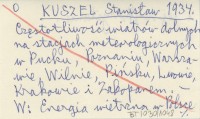 O KUSZEL Stanisław 1934.
Częstotliwość wiatrów dolnych
na stacjach meteorologicznych
w Pucku, Poznaniu, Warsza-
wie, Wilnie, Pińsku, Lwowie,
Krakowie i Zakopanem. -
W: Energia wietrzna w Polsce